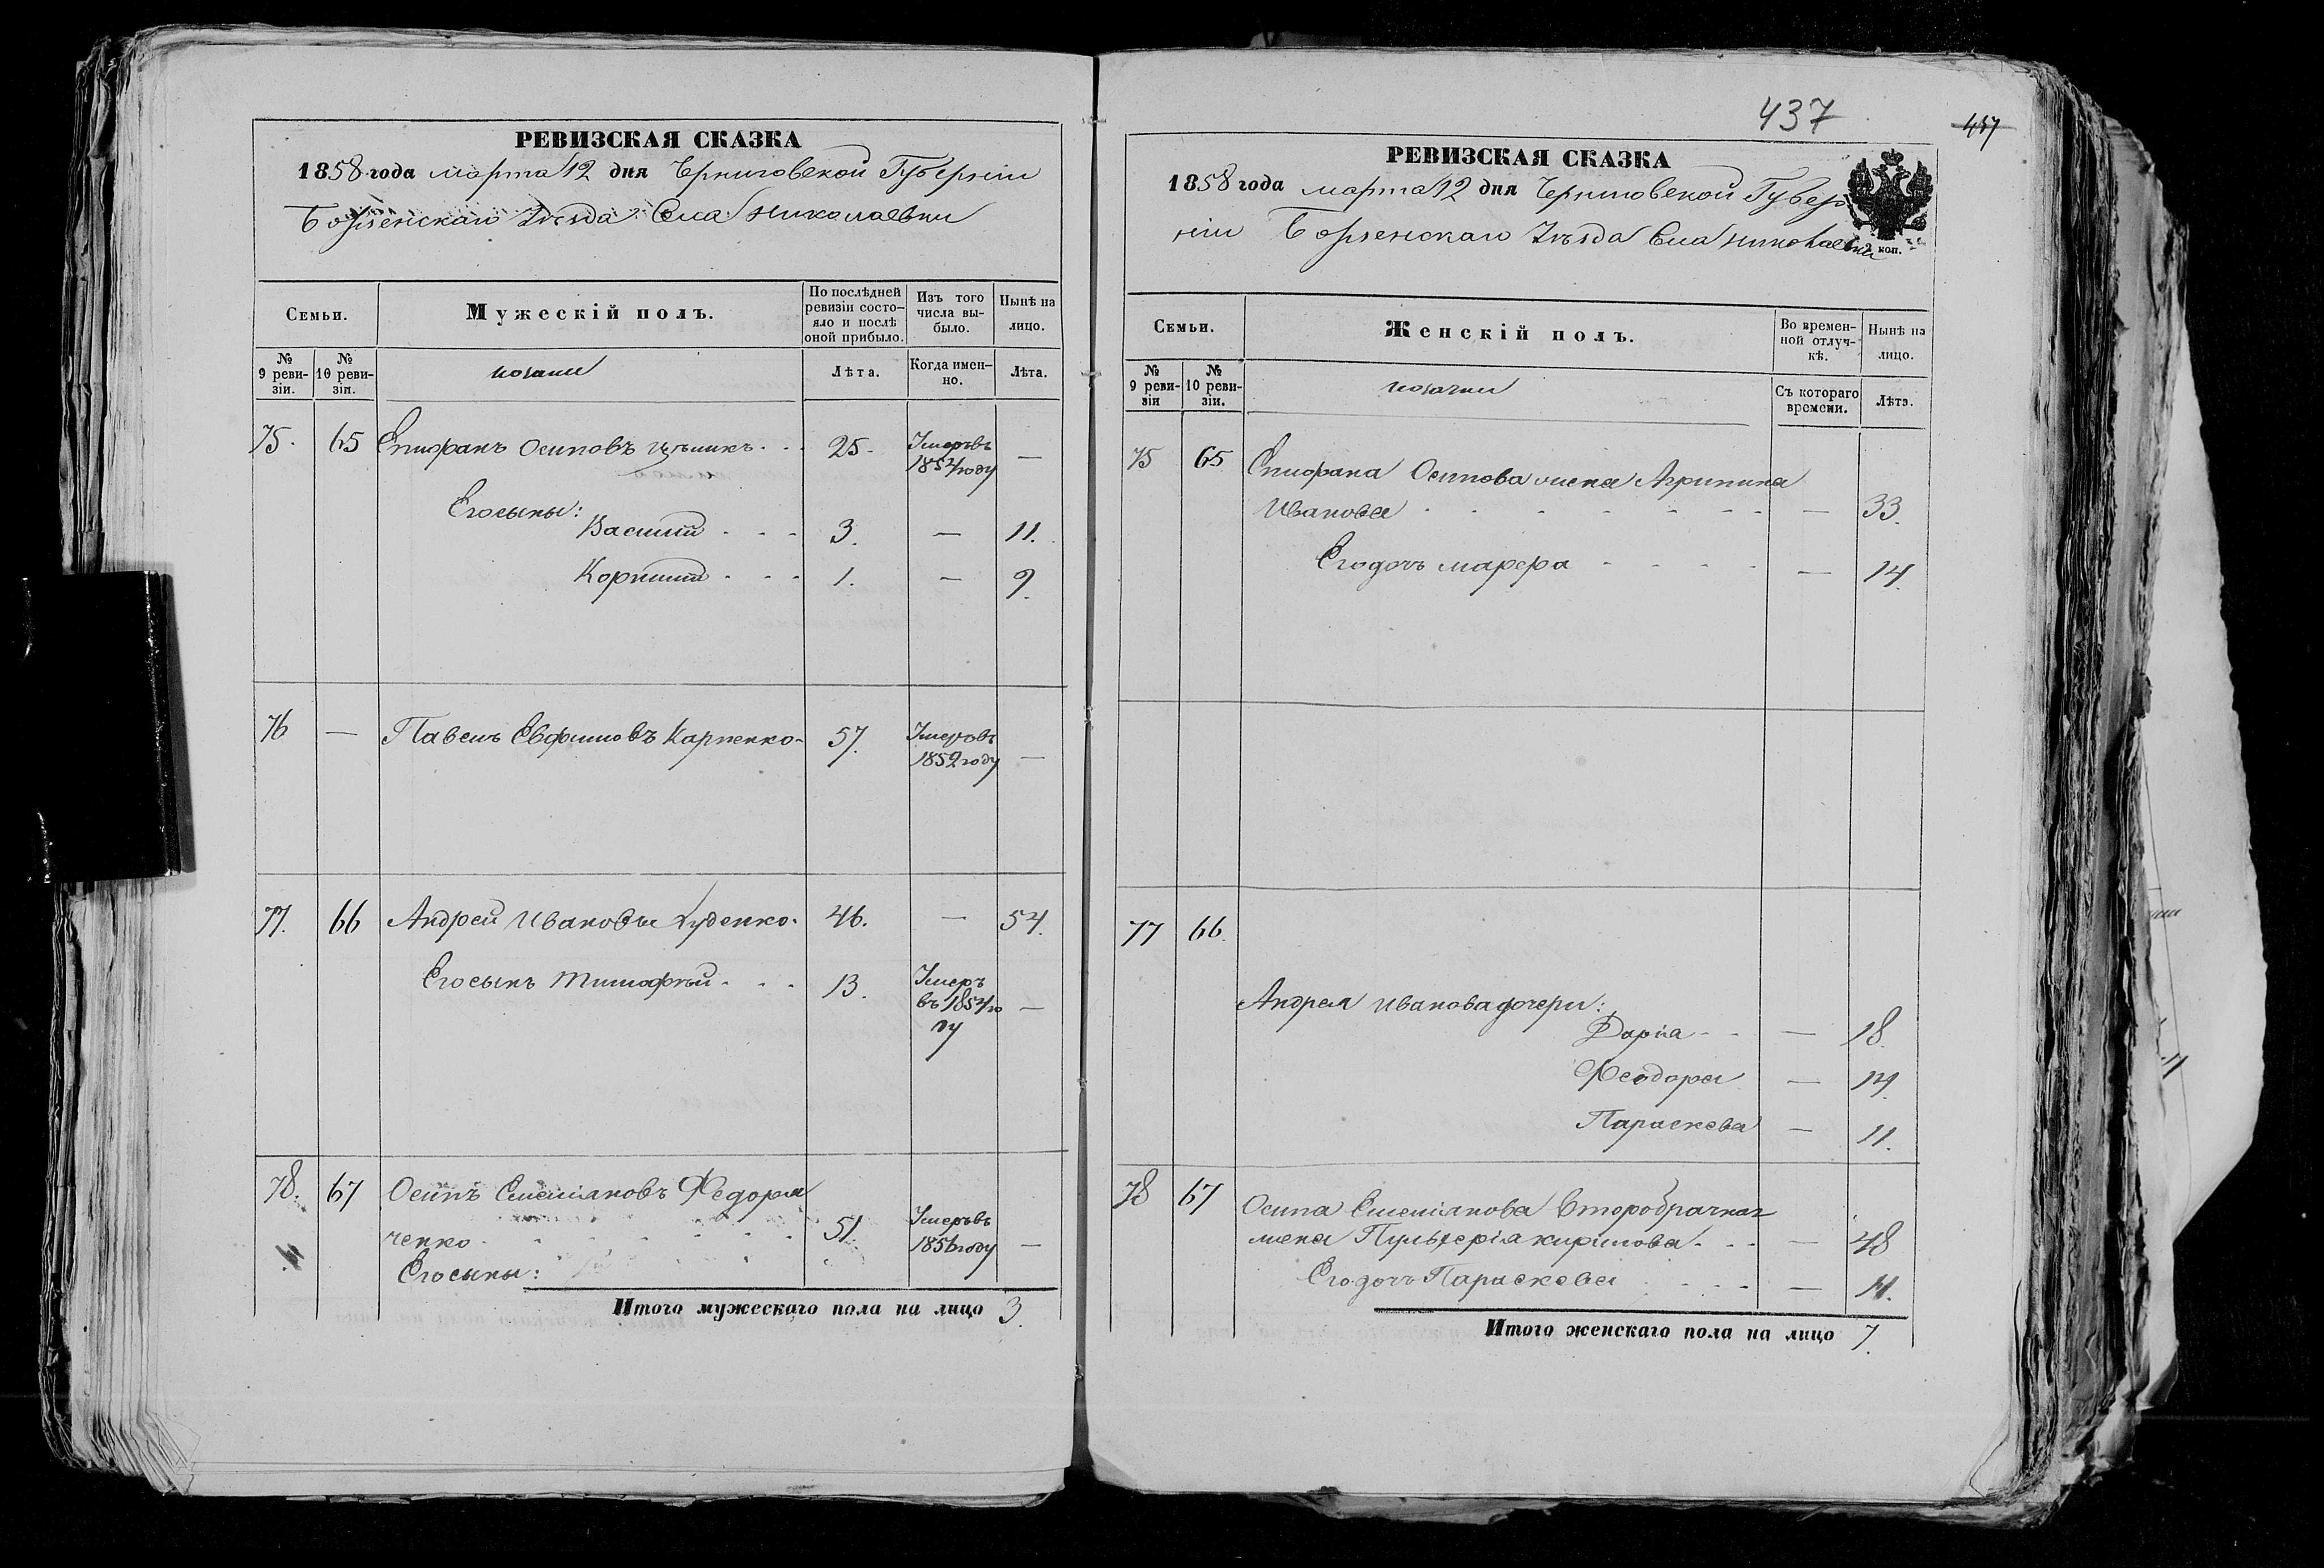 РЕВИЗСКАЯ СКАЗКА
1858 года марта 12 дня Черниговской Губерніи
Борзенскаго Уезда Села Николаевки
Семьи.
Мужескій полъ.
По послѣдней ревизіи состояло и послѣ оной прибыло.
Изъ того числа выбыло.
Нынѣ на лицо.
№ 9 ревизіи.
№ 10 ревизіи.
козаки
Лѣта.
Когда именно.
Лѣта.
75. 65 Епифанъ Осиповъ 25. Умеръ въ 1854 году —
Его сыны:
Василій 3. — 11.
Корнилій 1. — 9.
76 — Павелъ Евфимовъ Карпенко 57. Умеръ въ 1852 году —
77. 66 Андрей Ивановъ Худенко 46. — 54.
Его сынъ Тимофѣй 13. Умеръ въ 1854 году —
78. 67 Осипъ Емеліановъ Федорченко 51. Умеръ въ 1856 году —
Его сыны:
Итого мужескаго пола на лицо 3.
437
457
РЕВИЗСКАЯ СКАЗКА
1858 года марта 12 дня Черниговской Губер
ніи Борзенскаго Уѣзда Села Николаевки
2 коп.
Семьи.
Женскій полъ.
Во временной отлучкѣ.
Нынѣ на лицо.
№ 9 ревизіи
№ 10 ревизіи.
козачки
Съ котораго времени.
Лѣта.
75 65 Епифана Осипова жена Агрипина
Иванова — 33.
Его дочь Марфа — 14.
77 66.
Андрея Иванова дочери:
Дарія — 18.
Феодора — 14.
Параскева — 11.
78 67 Осипа Емеліянова второбрачная
жена Пульхерія Кирилова — 48
Его дочь Параскева — 11.
Итого женскаго пола на лицо 7.